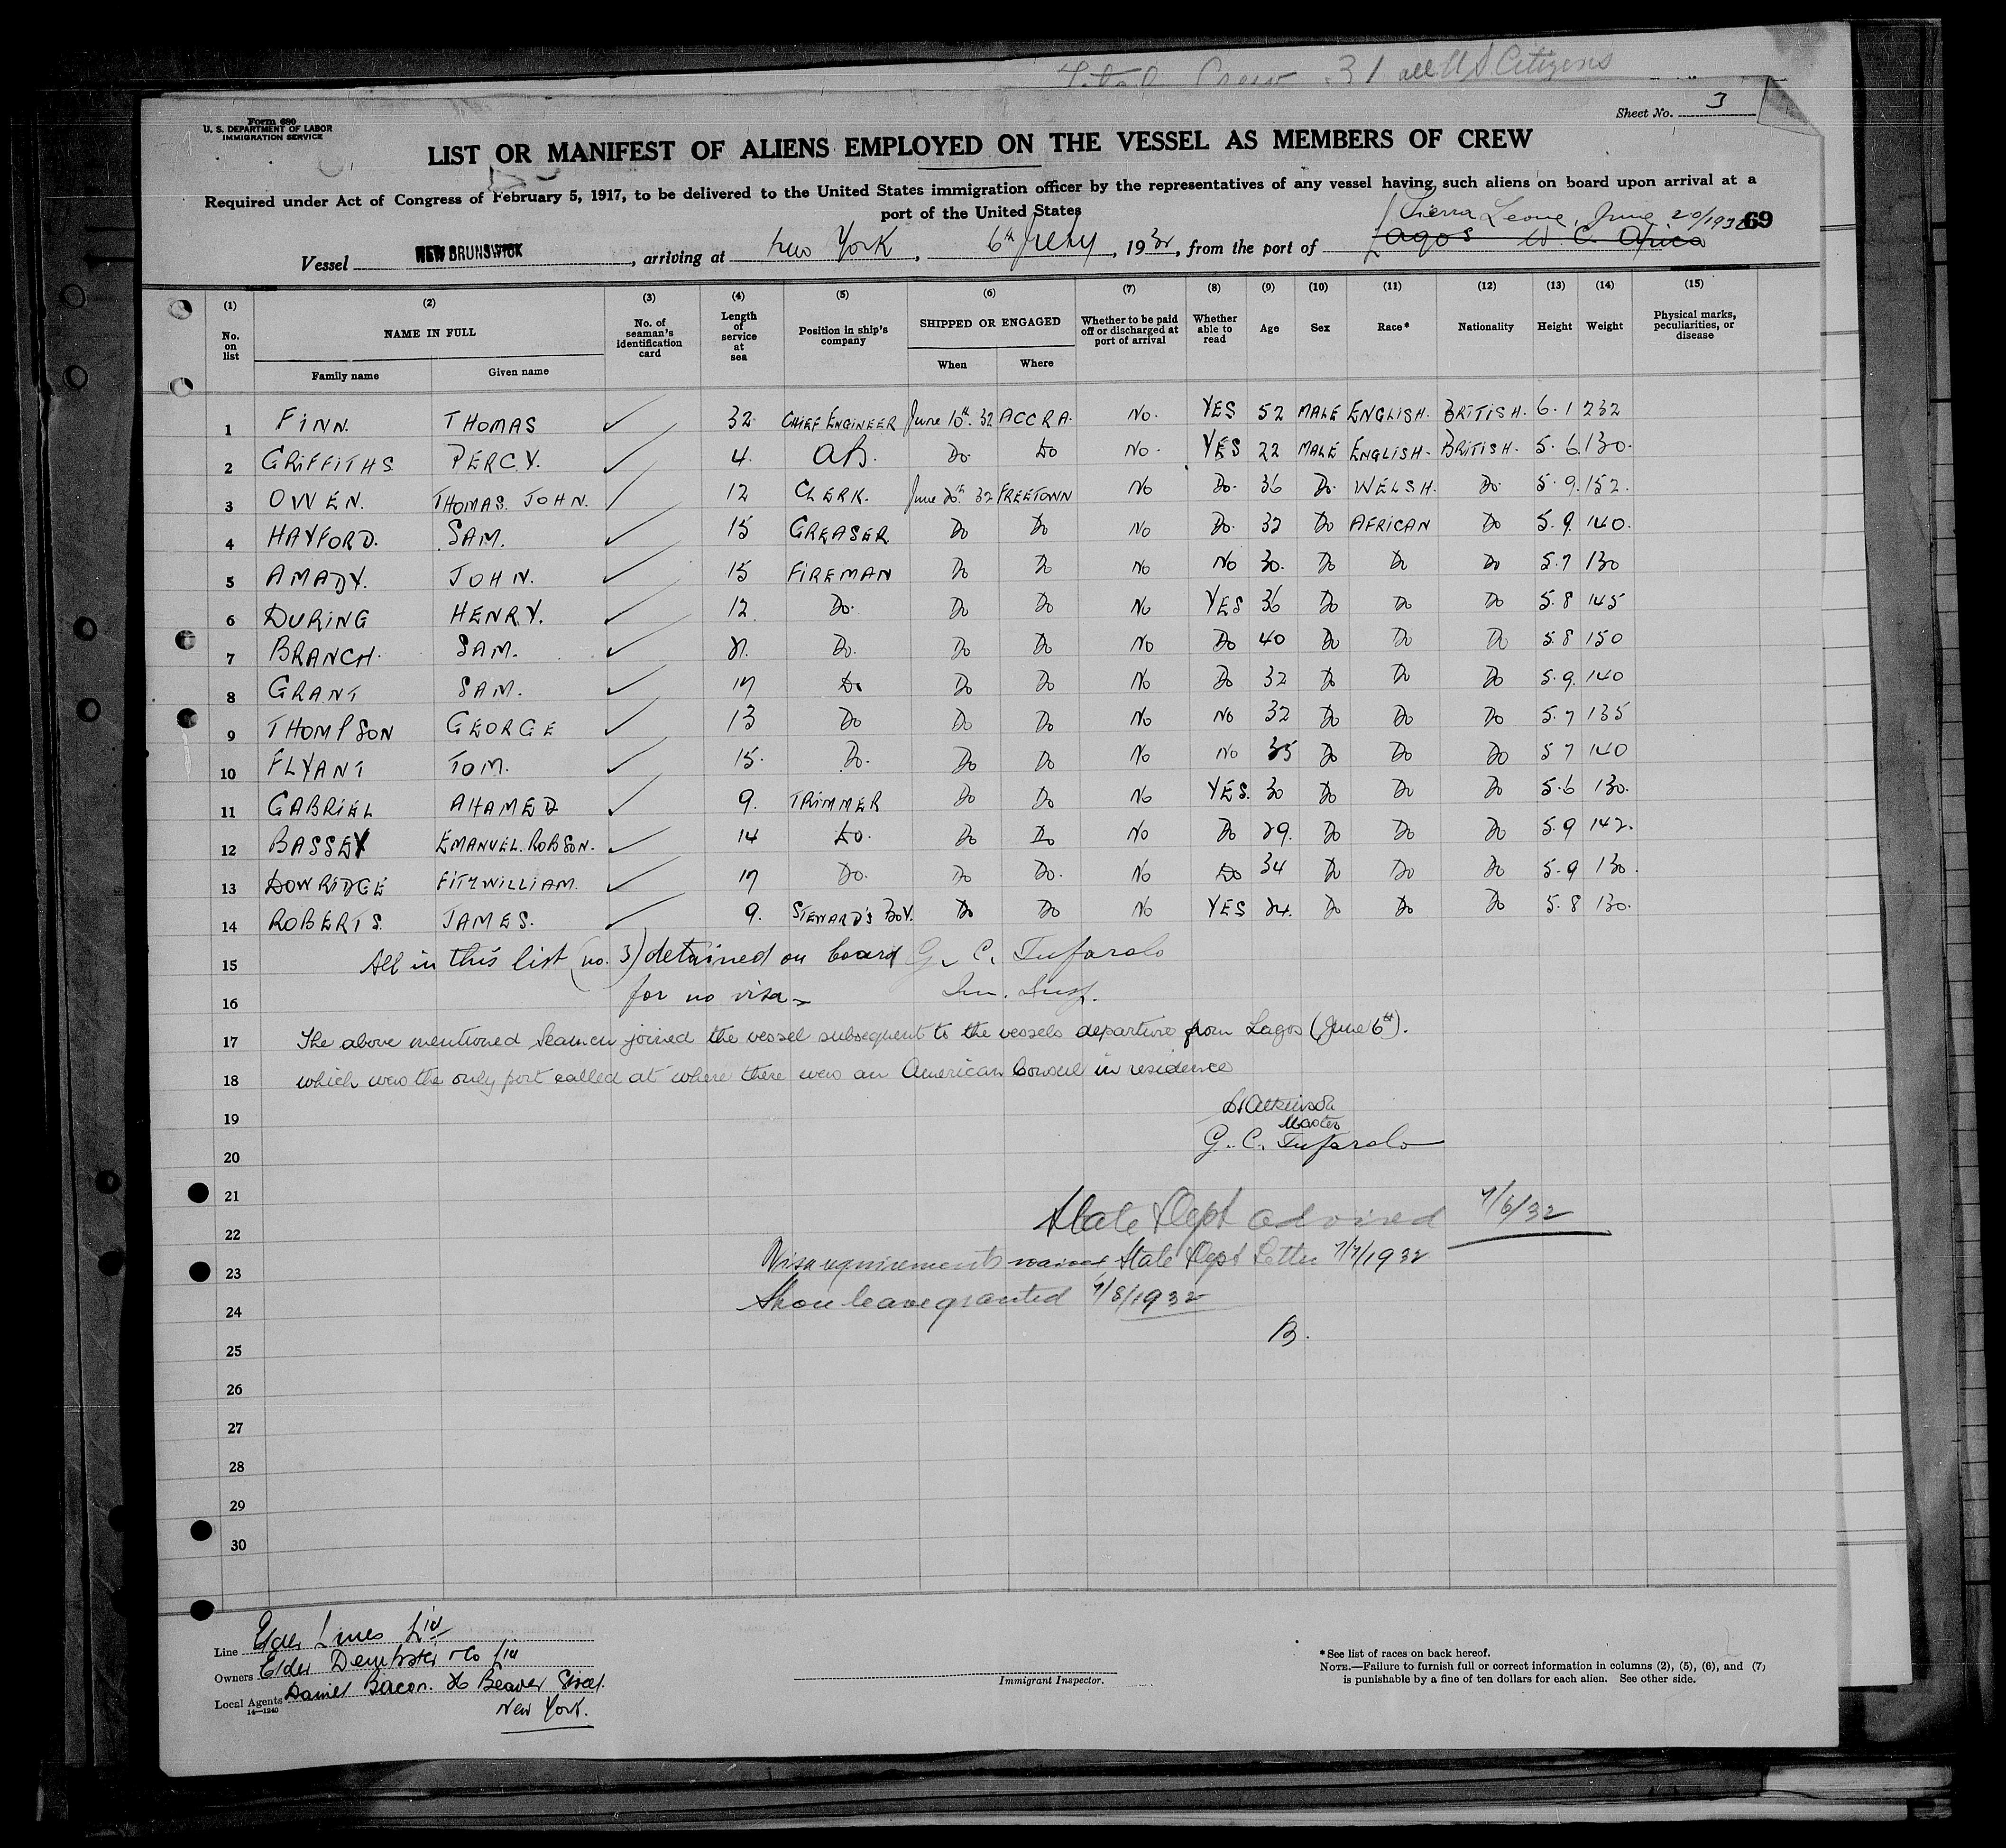 Total Crew 31 all US Citizens
Form 680
U. S. DEPARTMENT OF LABOR
IMMIGRATION SERVICE
Sheet No. 3
LIST OR MANIFEST OF ALIENS EMPLOYED ON THE VESSEL AS MEMBERS OF CREW
Required under Act of Congress of February 5, 1917, to be delivered to the United States immigration officer by the representatives of any vessel having such aliens on board upon arrival at a
port of the United States
Sierra Leone, June 20/1932
69
Vessel NEW BRUNSWICK, arriving at New York, 6th July, 1932, from the port of Lagos W. C. Africa
(1) (2) (3) (4) (5) (6) (7) (8) (9) (10) (11) (12) (13) (14) (15)
No. on list NAME IN FULL No. of seaman's identification card Length of service at sea Position in ship's company SHIPPED OR ENGAGED Whether to be paid off or discharged at port of arrival Whether able to read Age Sex Race* Nationality Height Weight Physical marks, peculiarities, or disease
Family name Given name When Where
1 FINN. THOMAS ✓ 32. CHIEF ENGINEER June 10th. 32 ACCRA. No. YES 52 MALE ENGLISH. BRITISH. 6.1 232
2 GRIFFITHS PERCY. ✓ 4. AB. Do. Do No. YES 22 MALE ENGLISH. BRITISH. 5.6. 130.
3 OWEN. THOMAS. JOHN. ✓ 12 CLERK. June 20th 32 FREETOWN No Do. 36 Do. WELSH. Do. 5.9. 152.
4 HAYFORD. SAM. ✓ 15 GREASER Do Do No Do. 32 Do AFRICAN Do 5.9. 140.
5 AMADY. JOHN. ✓ 15 FIREMAN Do Do No No 30. Do Do Do 5.7 130
6 DURING HENRY. ✓ 12 Do. Do Do No YES 36 Do Do Do 5.8 145
7 BRANCH. SAM. ✓ Do. Do Do No Do 40 Do Do Do 5.8 150
8 GRANT SAM. ✓ 17 Do Do Do No Do 32 Do Do Do 5.9. 140
9 THOMPSON GEORGE ✓ 13 Do Do Do No No 32 Do Do Do 5.7 135
10 FLYANT TOM. ✓ 15. Do. Do Do No No 35 Do Do Do 5 7 140
11 GABRIEL AHAMED ✓ 9. TRIMMER Do Do No YES. 30 Do Do Do 5.6 130.
12 BASSEY EMANUEL. ROBSON. ✓ 14 Do. Do Do No Do 29. Do Do Do 5.9 142.
13 DOWRIDGE FITZWILLIAM. ✓ 17 Do. Do Do. No Do 34 Do Do Do 5.9 130.
14 ROBERTS. JAMES. ✓ 9. STEWARD'S BOY. Do Do No YES 24. Do Do Do 5.8 130.
15 All in this list (no. 3) detained on board G. C. Tufarolo
16 for no visa - Im. Insp.
17 The above mentioned Seamen joined the vessel subsequent to the vessels departure from Lagos (June 6th).
18 which was the only port called at where there was an American Consul in residence
19 Atkinson
Master
20 G. C. Tufarolo
21
22 State Dept advised 7/6/32
23 Visa requirements waived State Dept Letter 7/7/1932
24 Shore leave granted 7/8/1932
B.
25
26
27
28
29
30
Line Elder Lines Ltd
Owners Elder Dempster & Co Ltd
Local Agents Daniel Bacon. 26 Beaver Street.
New York.
14—1240
Immigrant Inspector.
*See list of races on back hereof.
NOTE.—Failure to furnish full or correct information in columns (2), (5), (6), and (7)
is punishable by a fine of ten dollars for each alien. See other side.